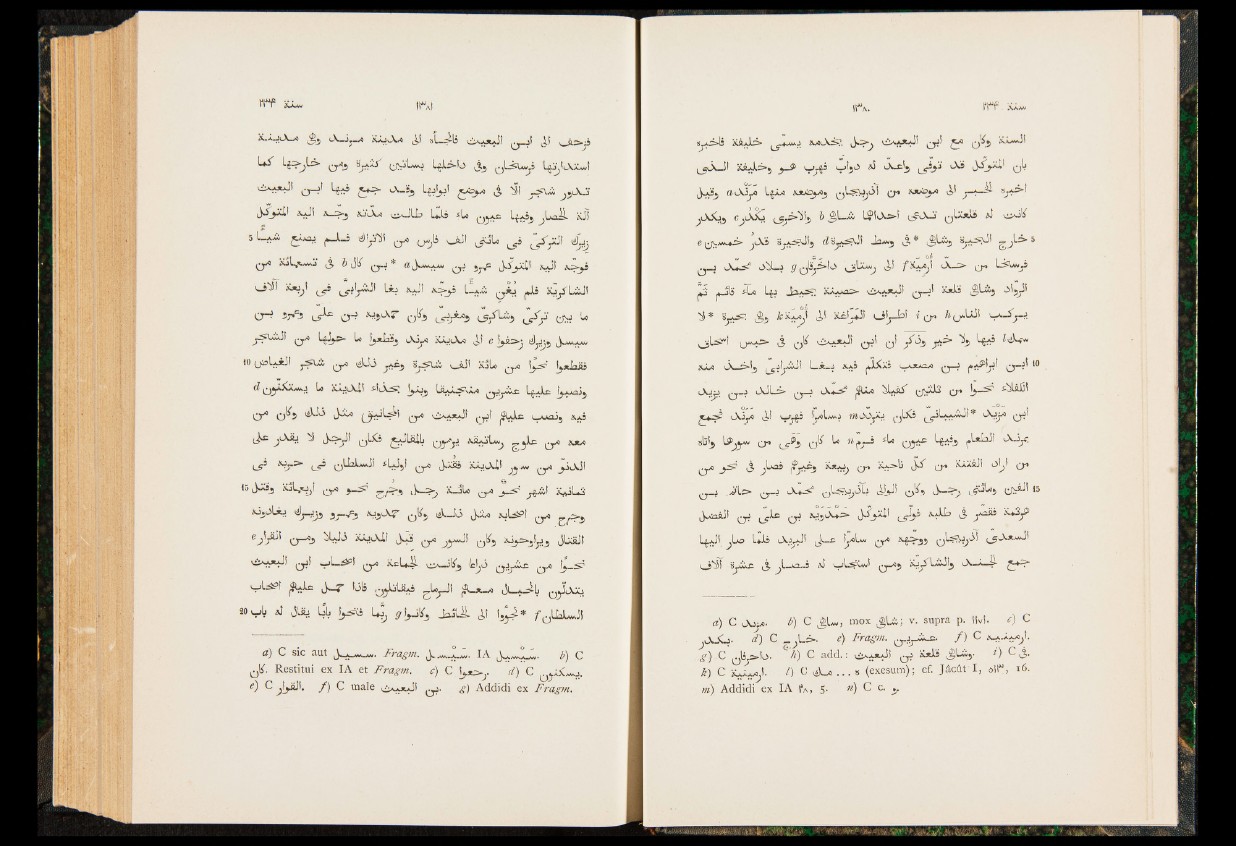 سنة ٢٣٤
١٣٨٠
السنة وكان مع ابن البعيث رجل يخدمه يسمّى خليفة فاخبره
بان المتوكّل قد توفّى واعدّ له دوابّ فهرب هو وخليفة الذى
اخبره الخبر الى موضعه من آذربيجان وموضعه منها مَرَنْد a وقيل
كانت له قلعتان تدعى احداهما شاهى b والاخرى يَكْدُر c ويكدر
5 خارج البحيرة وشاهى *فى وسط البحيرة d والبحيرة قدر خمسين e
فرسخا من حدّ أُرْمِيَة f الى رستاق داخَرَّقان g بلاد محمّد بن
الروّاد وشاهى قلعة ابن البعيث حصينة يحيط بها ماء قائم ثَمَّ
يركب الناس h من i اطراف المَراغة الى أُرْمِيَة k وهى بحيرة *لا
سمك l فيها ولا خير وذُكر ان ابن البعيث كان فى حبس اسحاق
10 ابن ابراهيم بن مصعب فتكلّم فيه بغا الشرابىّ واخذ منه
الكفلاء نحوا من ثلثين كفيلا منهم محمّد بن خالد بن يزيد
ابن مَزْيَد *الشيبانىّ فكان يتردّد m بسامرّا فهرب الى مَرَنْد فجمع
بمرند الطعام وفيها عيون ماء فرمّ n ما كان وَهَى من سورها واتاه
من اراد الفتنة من كلّ ناحية من ربيعة وغيرهم فصار فى نحو من
15 الفين ومائتى رجل، وكان الوالى بآذربيجان محمّد بن حاتم بن
هرثمة فقصّر فى طلبه فولّى المتوكّل حَمْدَوَيْه بن علىّ بن الفضل
السعدىّ آذربيجان ووجّهه من سامرّا على البريد فلمّا صار اليها
جمع الجند والشاكريّة ومن استجاب له فصار فى عشرة آلاف
a) C مزيد. b) C ساهى, mox شاهى; v. supra p. ١١٧١. c) C
يكدر. d) C خارج. e) Fragm. عشرين. f) C ارمينية.
g) C داحرفان. h) C add.: وشاهى قلعة بن البعيث. i) C فى.
k) C ارمينية. l) C سمك ... (exesum); cf. Jâcût I, ٥١٣, 16.
m) Addidi ex IA ٢٨, 5. n) C c. و.
سنة ٢٣٤
١٣٨١
فزحف الى ابن البعيث فألجأه الى مدينة مرند وهى مدينة
استدارتها فرسخان وفى داخلها بساتين كثيرة ومن خارجها كما
تدور شجر الّا فى موضع ابوابها وقد جمع فيها ابن البعيث
آلة الحصار وفيها عيون ماء فلمّا طالت مدّته وجّه اليه المتوكّل
5 زيرك التركىّ فى مائتى الف فارس من الاتراك فلم يصنع شيئا
فوجّه اليه المتوكّل عمرو بن سيسل a *بن كال b فى تسعمائة من
الشاكريّة فلم يُغْنِ شيئا فوجّه اليه بغا الشرابىّ فى اربعة آلاف
ما بين تركىّ وشاكرىّ ومغربىّ وكان حمدويه بن علىّ وعمرو بن
سيسل وزيرك زحفوا c الى مدينة مرند وقطعوا ما حولها من الشجر
10 فقطعوا نحوا من مائة الف شجرة وغير ذلك من شجر الغياض
ونصبوا عليها عشرين منجنيقا وبنوا بحذاء المدينة ما يستكنّون d
فيه ونصب عليهم ابن البعيث من المجانيق مثل ذلك وكان من
معه من علوج رساتيقه يرمون بالمقاليع فكان الرجل لا يقدر على
الدنوّ من سور المدينة فقُتل من اولياء السلطان فى حربه فى
15 ثمانية اشهر نحو من مائة رجل وجُرح نحو من اربعمائة وقُتل
وجرح من اصحابه مثل ذلك وكان حمدويه وعمرو وزيرك يغادونه
القتال ويراوحونه وكان السور من قِبَل المدينة ذليلا ومن القرار e
نحوا من عشرين ذراعا وكانت الجماعة من اصحاب ابن البعيث
يتدلّون بالحبال معهم الرماح فيقاتلون فاذا حمل عليهم اصحاب
20 السلطان f *لجؤوا الى الحائط وكانوا g ربّما فتحوا بابا يقال له باب
a) C sic aut سيسيل. Fragm. سَنْسَل. IA سِيسِيل. b) C
كان. Restitui ex IA et Fragm. c) C رحعوا. d) C يسكنون.
e) C القراو. f) C male بن البعيث. g) Addidi ex Fragm.